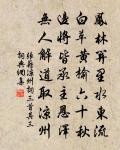 鳳林關里水東流
白草黃榆六十秋
邊將皆承主恩澤
無人解道取涼州
張籍涼州詞三首其三
詞典網集